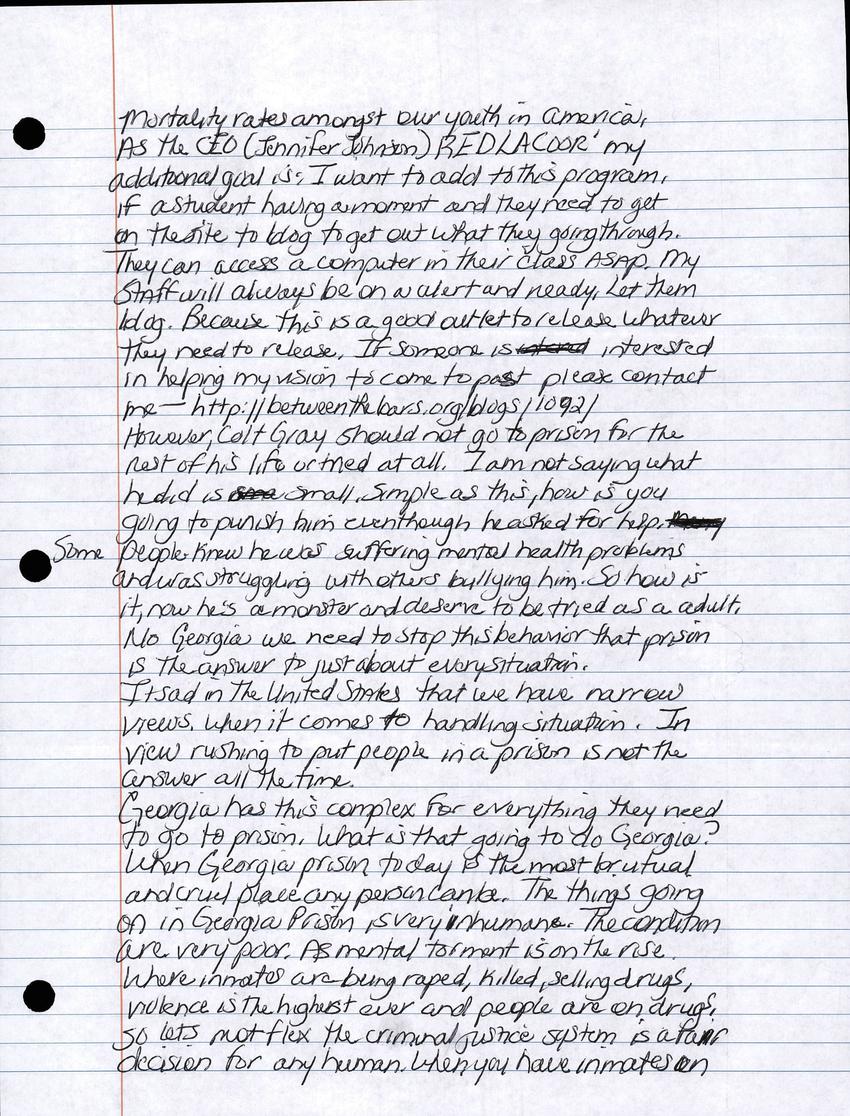 Mortality rates amongst our youth in America,
As the CEO (Jennifer Johnson) REDLACOOR' my
additional goal is; I want to add to this program,
if a student having a moment and they need to get
on the site to blog to get out what they going through.
They can access a computer in their class ASAP. My
Staff will always be on a alert and ready, Let them
blog. Because this is a good outlet to release whatever
they need to release. If someone is interested
in helping my vision to come to past please contact
me — http://betweenthebars.org/blogs/1092/
However, Colt Gray should not go to prison for the
rest of his life or tried at all. I am not saying what
he did is small. Simple as this, how is you
going to punish him eventhough he asked for help.
Some people knew he was suffering mental health problems
and was struggling with others bullying him. So how is
it, now he's a monster and deserve to be tried as a adult,
No Georgia we need to stop this behavior that prison
is the answer to just about every situation.
It sad in the United States that we have narrow
views, when it comes to handling situation. In
view rushing to put people in a prison is not the
answer all the time.
Georgia has this complex for everything they need
to go to prison. What is that going to do Georgia?
When Georgia prison today is the most brutual
and cruel place any person can be. The things going
on in Georgia Prison is very inhumane. The condition
are very poor. As mental torment is on the rise.
Where inmates are being raped, killed, selling drugs,
violence is the highest ever and people are on drugs,
so lets not flex the criminal justice system is a fair
decision for any human. When you have inmates on